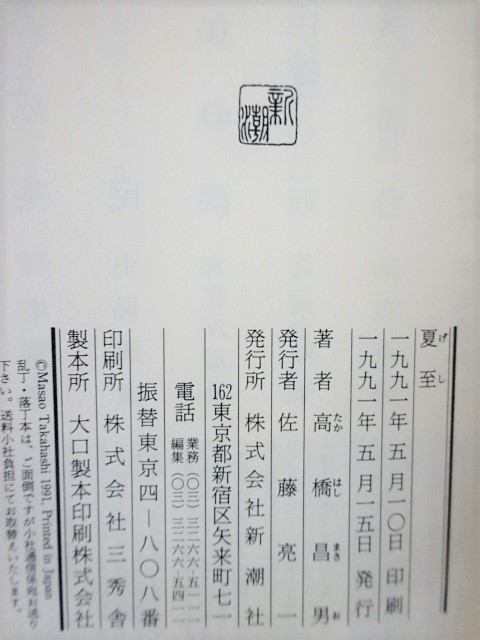 新潮
夏至
げし
一九九一年五月一〇日 印刷
一九九一年五月一五日 発行
著者 高橋昌男
たかはしまさお
発行者 佐藤亮一
発行所 株式会社新潮社
162東京都新宿区矢来町七一
電話 業務(〇三)三二六六―五一一一
編集(〇三)三二六六―五四一一
振替東京四―八〇八番
印刷所 株式会社三秀舎
製本所 大口製本印刷株式会社
©Masao Takahashi 1991, Printed in Japan
乱丁・落丁本は、ご面倒ですが小社通信係宛お送り
下さい。送料小社負担にてお取替えいたします。